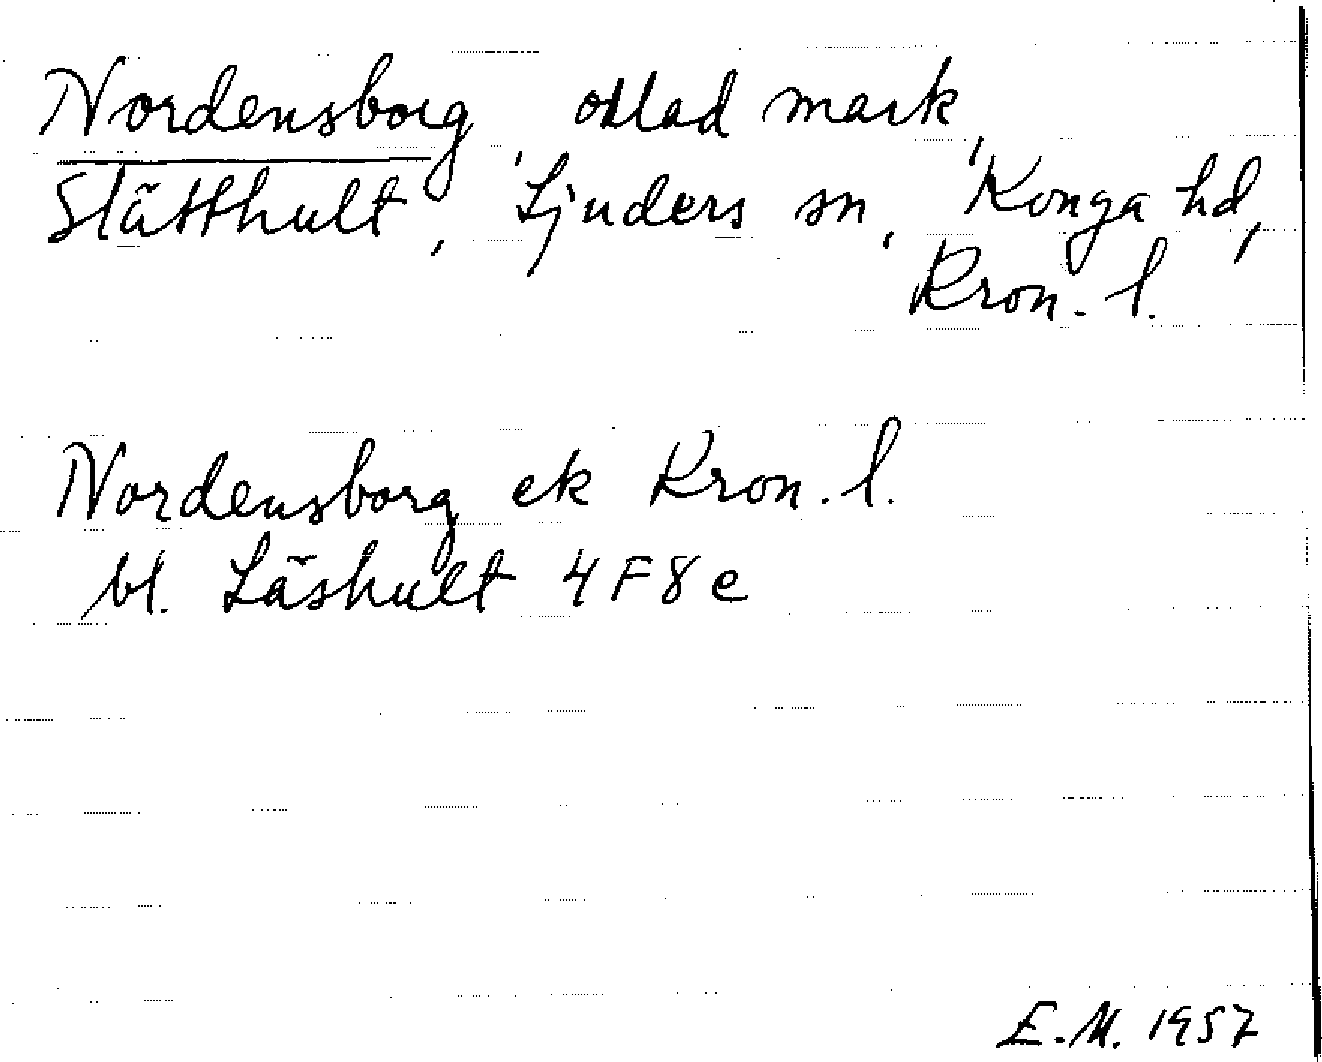 Nordensborg, odlad mark,
Slätthult, Ljuders sn, Konga hd,
Kron. l.
Nordensborg ek Kron. l.
bl. Låshult 4F8e
E.M. 1957